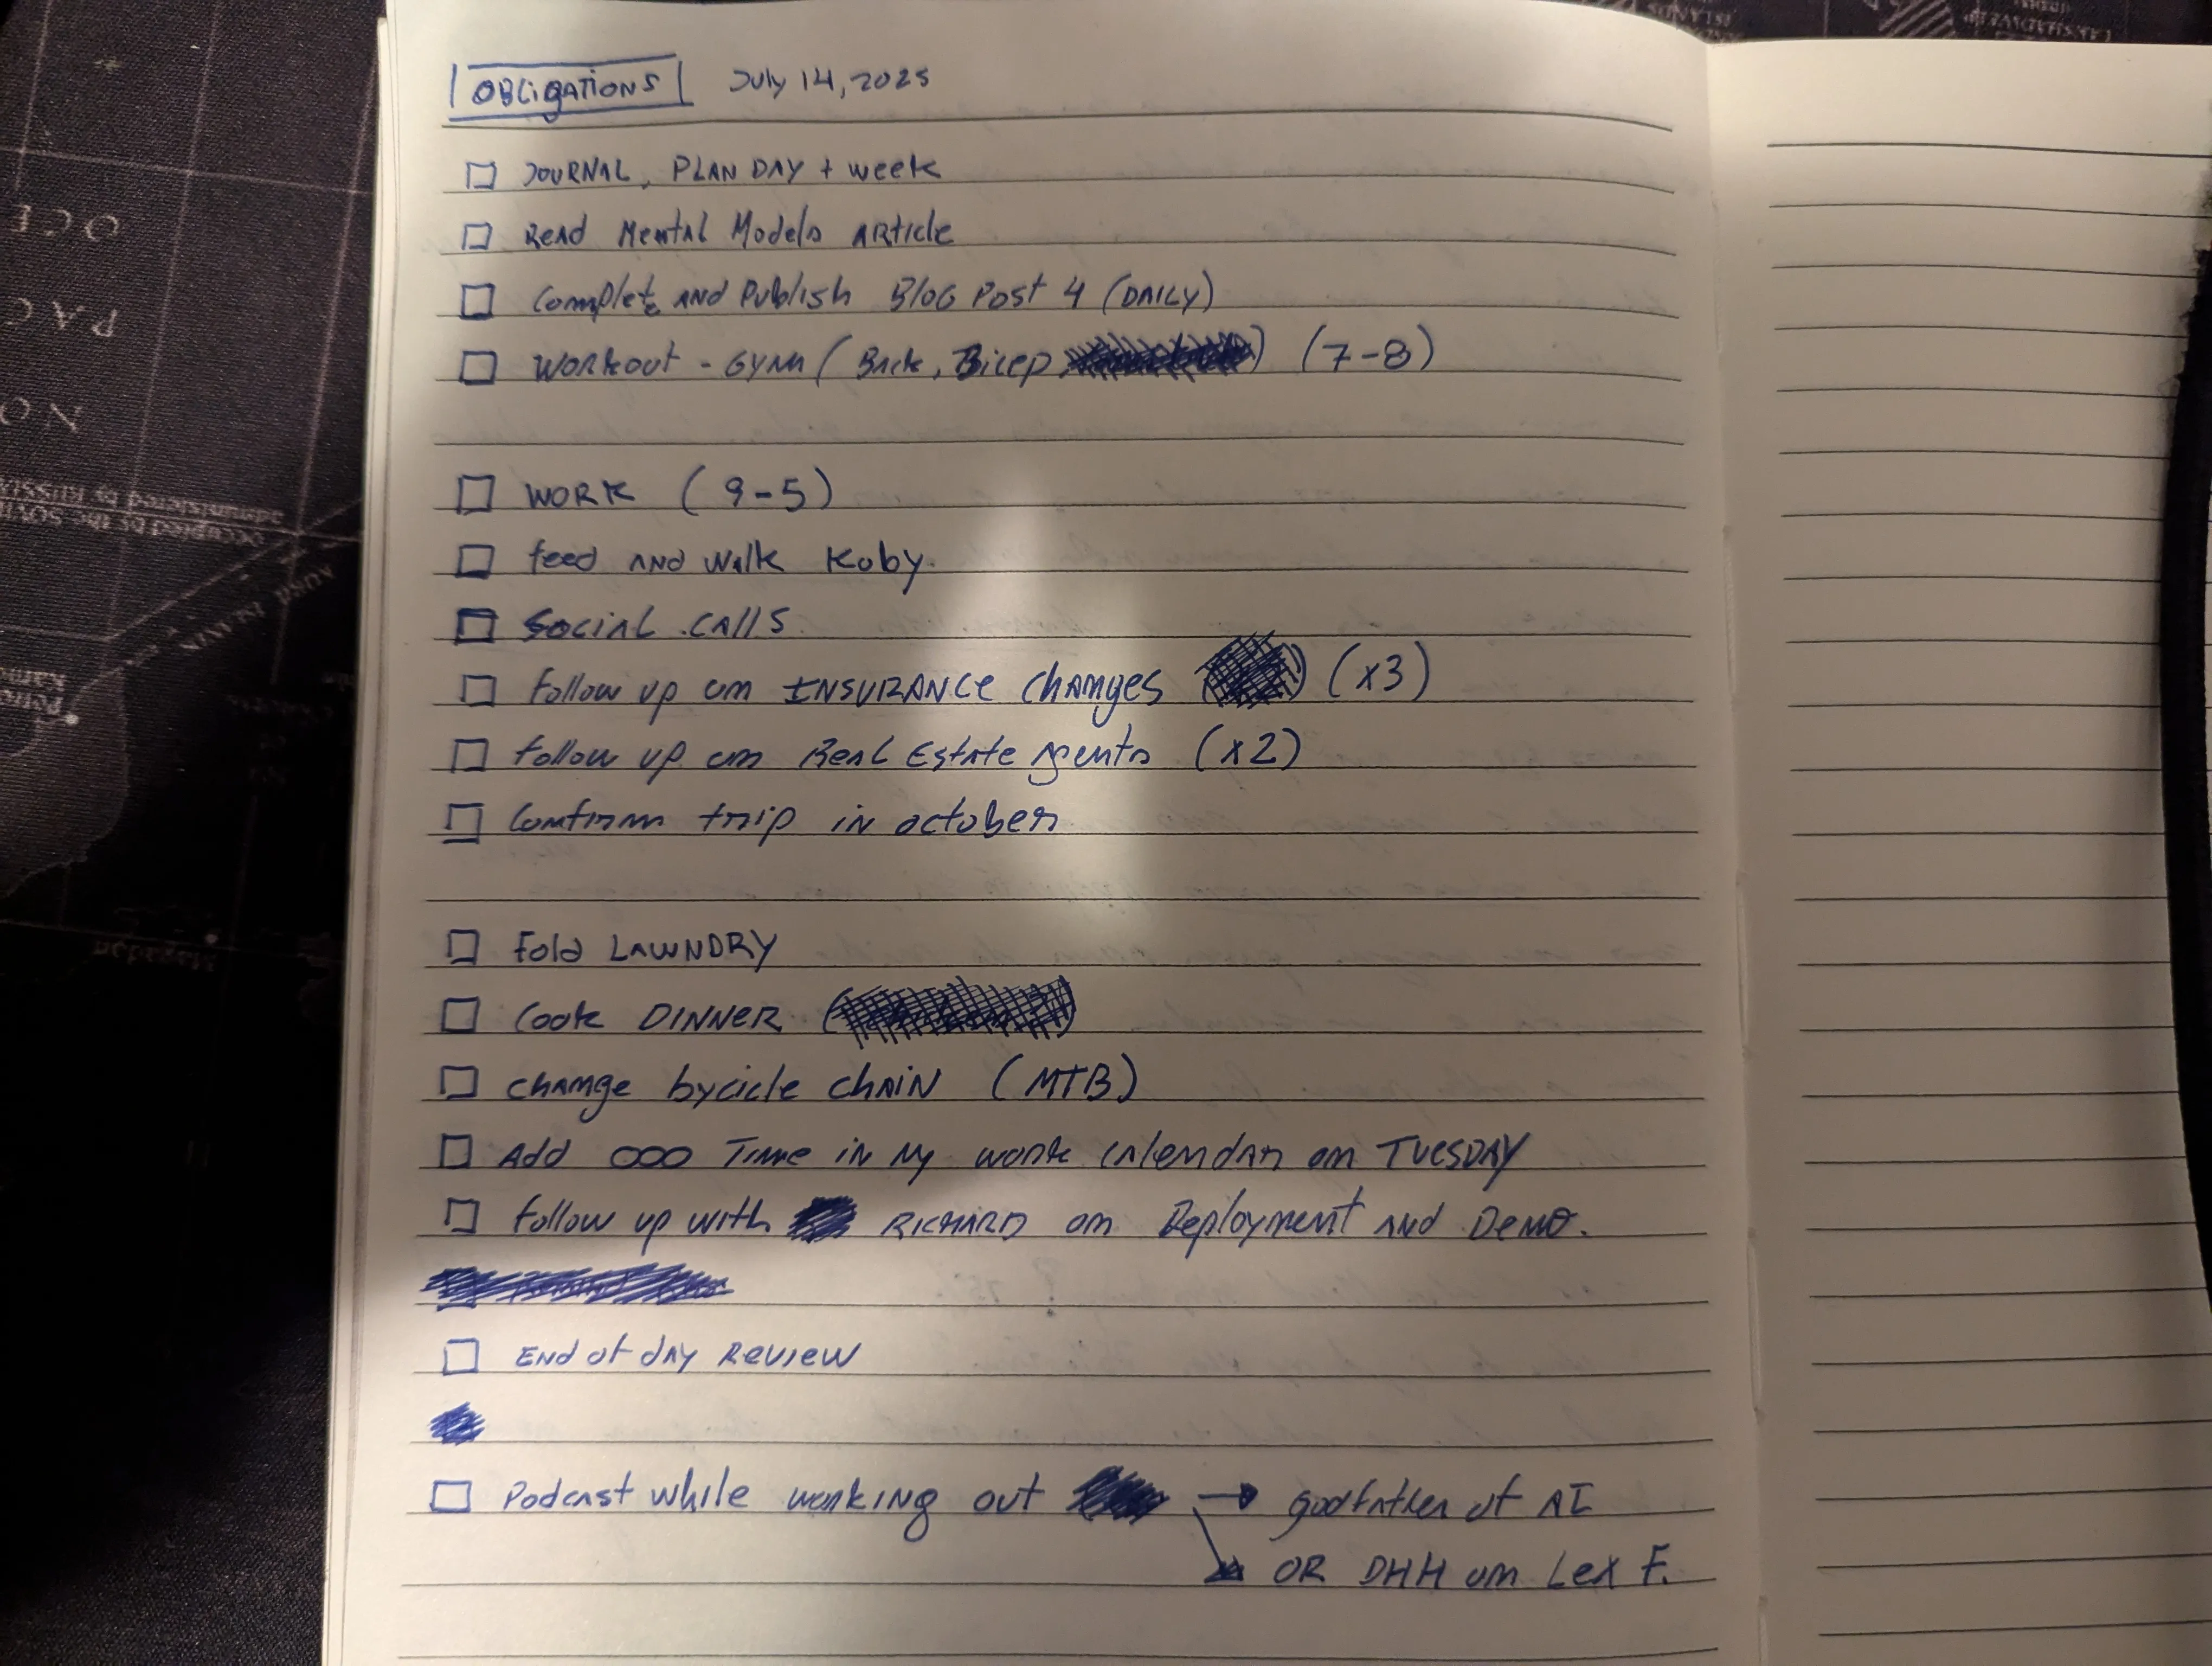 OBLIGATIONS July 14, 2025
JOURNAL, PLAN DAY + week
Read Mental Models Article
Complete AND Publish Blog Post 4 (DAILY)
Workout - Gym (Back, Bicep ) (7-8)
WORK (9-5)
feed AND walk Koby.
Social calls
follow up on INSURANCE changes (x3)
follow up on Real Estate Agents (x2)
Confirm trip in october
Fold LAWNDRY
Cook DINNER
change bycicle chain (MTB)
Add OOO Time in My work calendar on TUESDAY
follow up with RICHARD on Deployment and Demo.
End of day Review
Podcast while working out → godfather of AI
↘ OR DHH on Lex F.